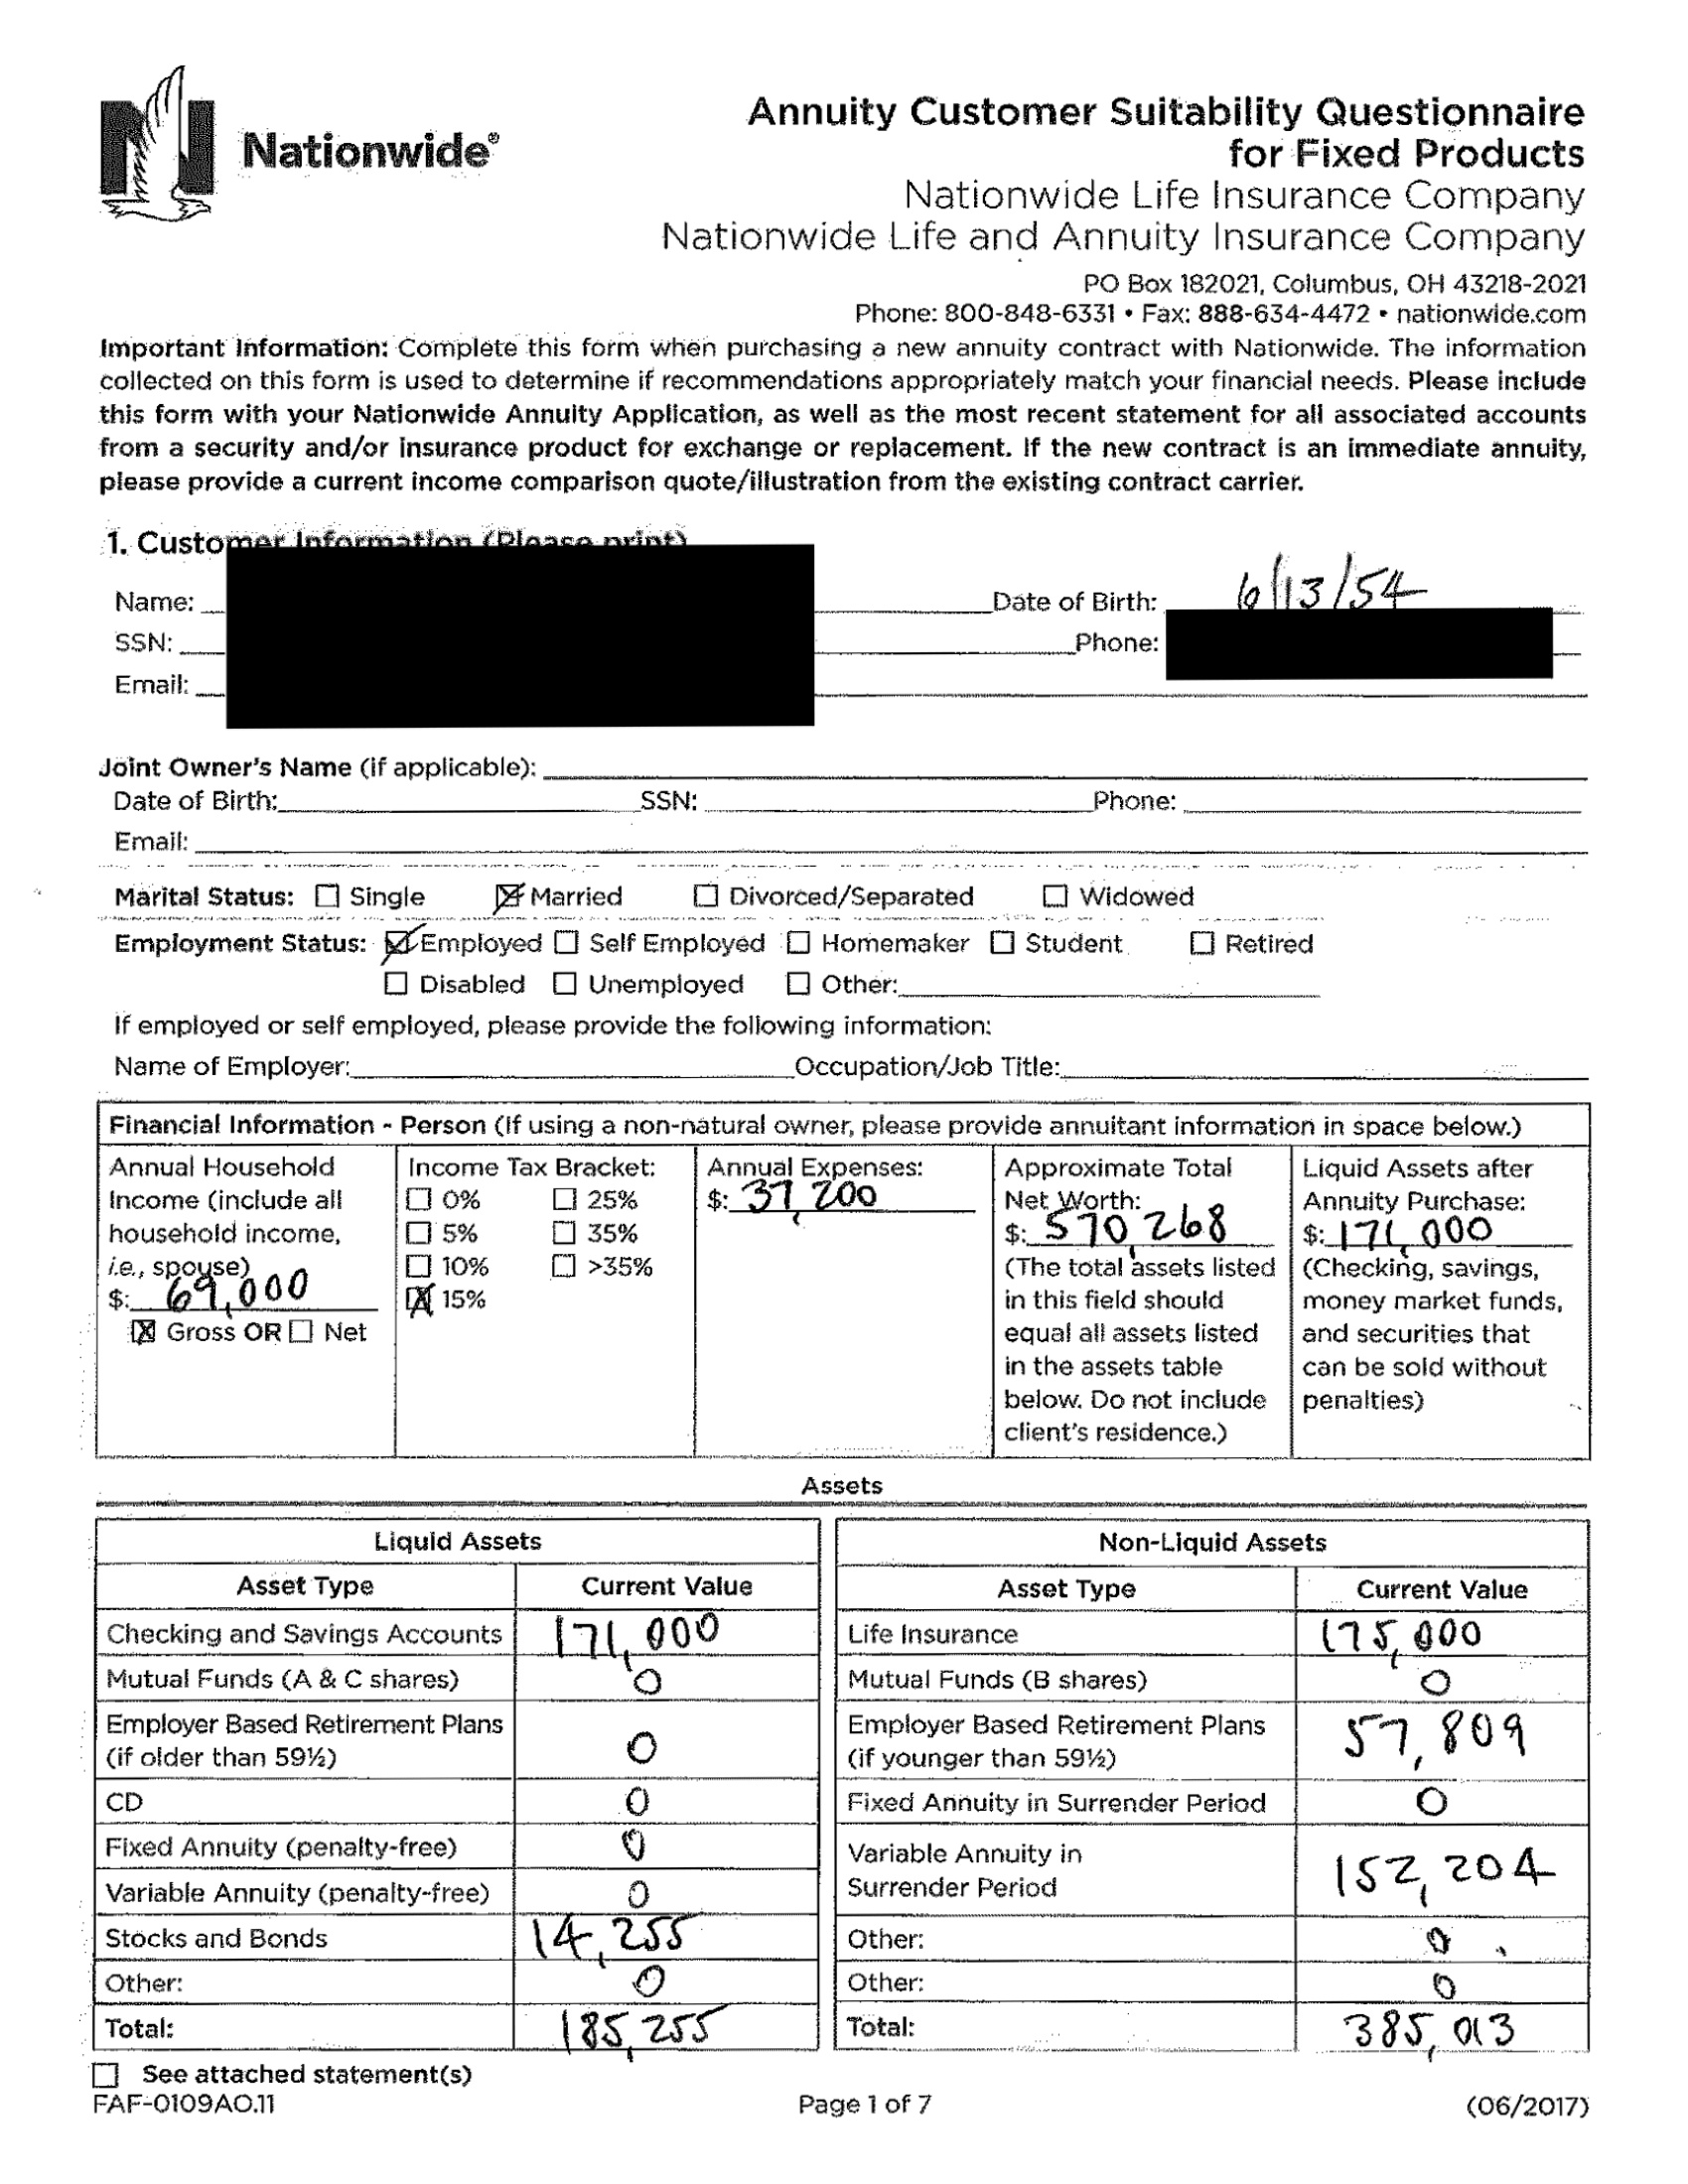 Nationwide®
Annuity Customer Suitability Questionnaire
for Fixed Products
Nationwide Life Insurance Company
Nationwide Life and Annuity Insurance Company
PO Box 182021, Columbus, OH 43218-2021
Phone: 800-848-6331 • Fax: 888-634-4472 • nationwide.com
Important Information: Complete this form when purchasing a new annuity contract with Nationwide. The information
collected on this form is used to determine if recommendations appropriately match your financial needs. Please include
this form with your Nationwide Annuity Application, as well as the most recent statement for all associated accounts
from a security and/or insurance product for exchange or replacement. If the new contract is an immediate annuity,
please provide a current income comparison quote/illustration from the existing contract carrier.
1. Customer Information (Please print)
Name: Date of Birth: 6/13/54
SSN: Phone:
Email:
Joint Owner's Name (if applicable):
Date of Birth: SSN: Phone:
Email:
Marital Status: ☐ Single ☒ Married ☐ Divorced/Separated ☐ Widowed
Employment Status: ☒ Employed ☐ Self Employed ☐ Homemaker ☐ Student ☐ Retired
☐ Disabled ☐ Unemployed ☐ Other:
If employed or self employed, please provide the following information:
Name of Employer: Occupation/Job Title:
Financial Information - Person (If using a non-natural owner, please provide annuitant information in space below.)
Annual Household
Income (include all
household income,
i.e., spouse)
$: 69,000
☒ Gross OR ☐ Net
Income Tax Bracket:
☐ 0% ☐ 25%
☐ 5% ☐ 35%
☐ 10% ☐ >35%
☒ 15%
Annual Expenses:
$: 37,200
Approximate Total
Net Worth:
$: 570,268
(The total assets listed
in this field should
equal all assets listed
in the assets table
below. Do not include
client's residence.)
Liquid Assets after
Annuity Purchase:
$: 171,000
(Checking, savings,
money market funds,
and securities that
can be sold without
penalties)
Assets
Liquid Assets
Asset Type Current Value
Checking and Savings Accounts 171,000
Mutual Funds (A & C shares) 0
Employer Based Retirement Plans
(if older than 59½) 0
CD 0
Fixed Annuity (penalty-free) 0
Variable Annuity (penalty-free) 0
Stocks and Bonds 14,255
Other: 0
Total: 185,255
Non-Liquid Assets
Asset Type Current Value
Life Insurance 175,000
Mutual Funds (B shares) 0
Employer Based Retirement Plans
(if younger than 59½) 57,809
Fixed Annuity in Surrender Period 0
Variable Annuity in
Surrender Period 152,204
Other: 0
Other: 0
Total: 385,013
☐ See attached statement(s)
FAF-0109AO.11 Page 1 of 7 (06/2017)